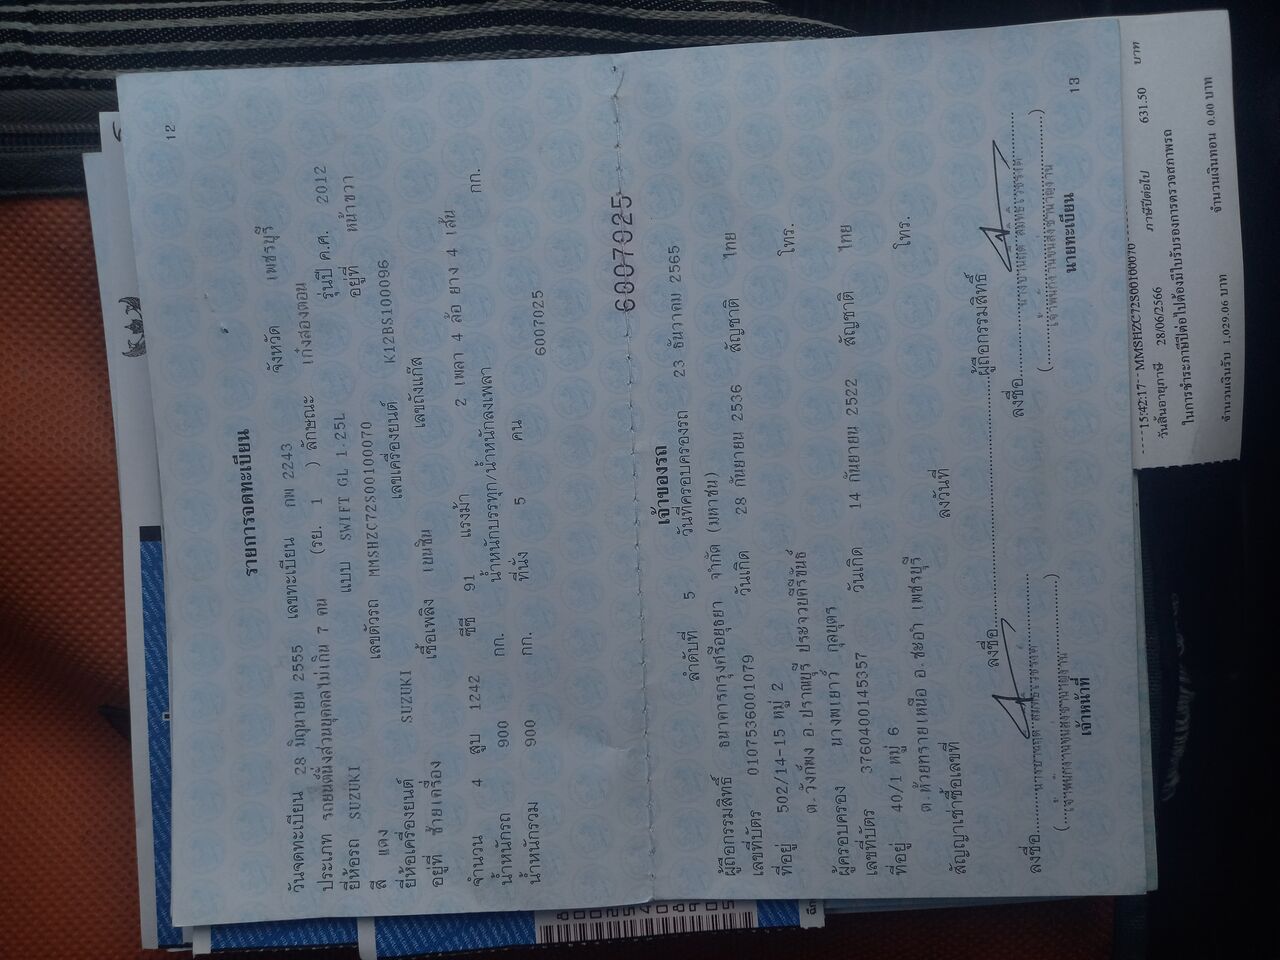 12
รายการจดทะเบียน
วันจดทะเบียน 28 มิถุนายน 2555 เลขทะเบียน กพ 2243 จังหวัด เพชรบุรี
ประเภท รถยนต์นั่งส่วนบุคคลไม่เกิน 7 คน (รย. 1 ) ลักษณะ เก๋งสองตอน
ยี่ห้อรถ SUZUKI แบบ SWIFT GL 1.25L รุ่นปี ค.ศ. 2012
สี แดง เลขตัวรถ MMSHZC72S00100070 อยู่ที่ หน้าขวา
ยี่ห้อเครื่องยนต์ SUZUKI เลขเครื่องยนต์ K12BS100096
อยู่ที่ ซ้ายเครื่อง เชื้อเพลิง เบนซิน เลขถังแก๊ส
จำนวน 4 สูบ 1242 ซีซี 91 แรงม้า 2 เพลา 4 ล้อ ยาง 4 เส้น
น้ำหนักรถ 900 กก. น้ำหนักบรรทุก/น้ำหนักลงเพลา กก.
น้ำหนักรวม 900 กก. ที่นั่ง 5 คน 6007025
6007025
เจ้าของรถ
ลำดับที่ 5 วันที่ครอบครองรถ 23 ธันวาคม 2565
ผู้ถือกรรมสิทธิ์ ธนาคารกรุงศรีอยุธยา จำกัด (มหาชน)
เลขที่บัตร 0107536001079 วันเกิด 28 กันยายน 2536 สัญชาติ ไทย
ที่อยู่ 502/14-15 หมู่ 2 โทร.
ต.วังก์พง อ.ปราณบุรี ประจวบคีรีขันธ์
ผู้ครอบครอง นางพเยาว์ กุลบุตร
เลขที่บัตร 3760400145357 วันเกิด 14 กันยายน 2522 สัญชาติ ไทย
ที่อยู่ 40/1 หมู่ 6 โทร.
ต.ห้วยทรายเหนือ อ.ชะอำ เพชรบุรี
สัญญาเช่าซื้อเลขที่ ลงวันที่
ลงชื่อ ผู้ถือกรรมสิทธิ์
ลงชื่อ ลงชื่อ
(เจ้าพนักงานขนส่งชำนาญงาน) (เจ้าพนักงานขนส่งชำนาญงาน)
เจ้าหน้าที่ นายทะเบียน
13
15:42:17 MMSHZC72S00100070
วันสิ้นอายุภาษี 28/06/2566 ภาษีปีต่อไป 631.50 บาท
ในการชำระภาษีปีต่อไปต้องมีใบรับรองการตรวจสภาพรถ
จำนวนเงินรับ 1,029.06 บาท จำนวนเงินทอน 0.00 บาท